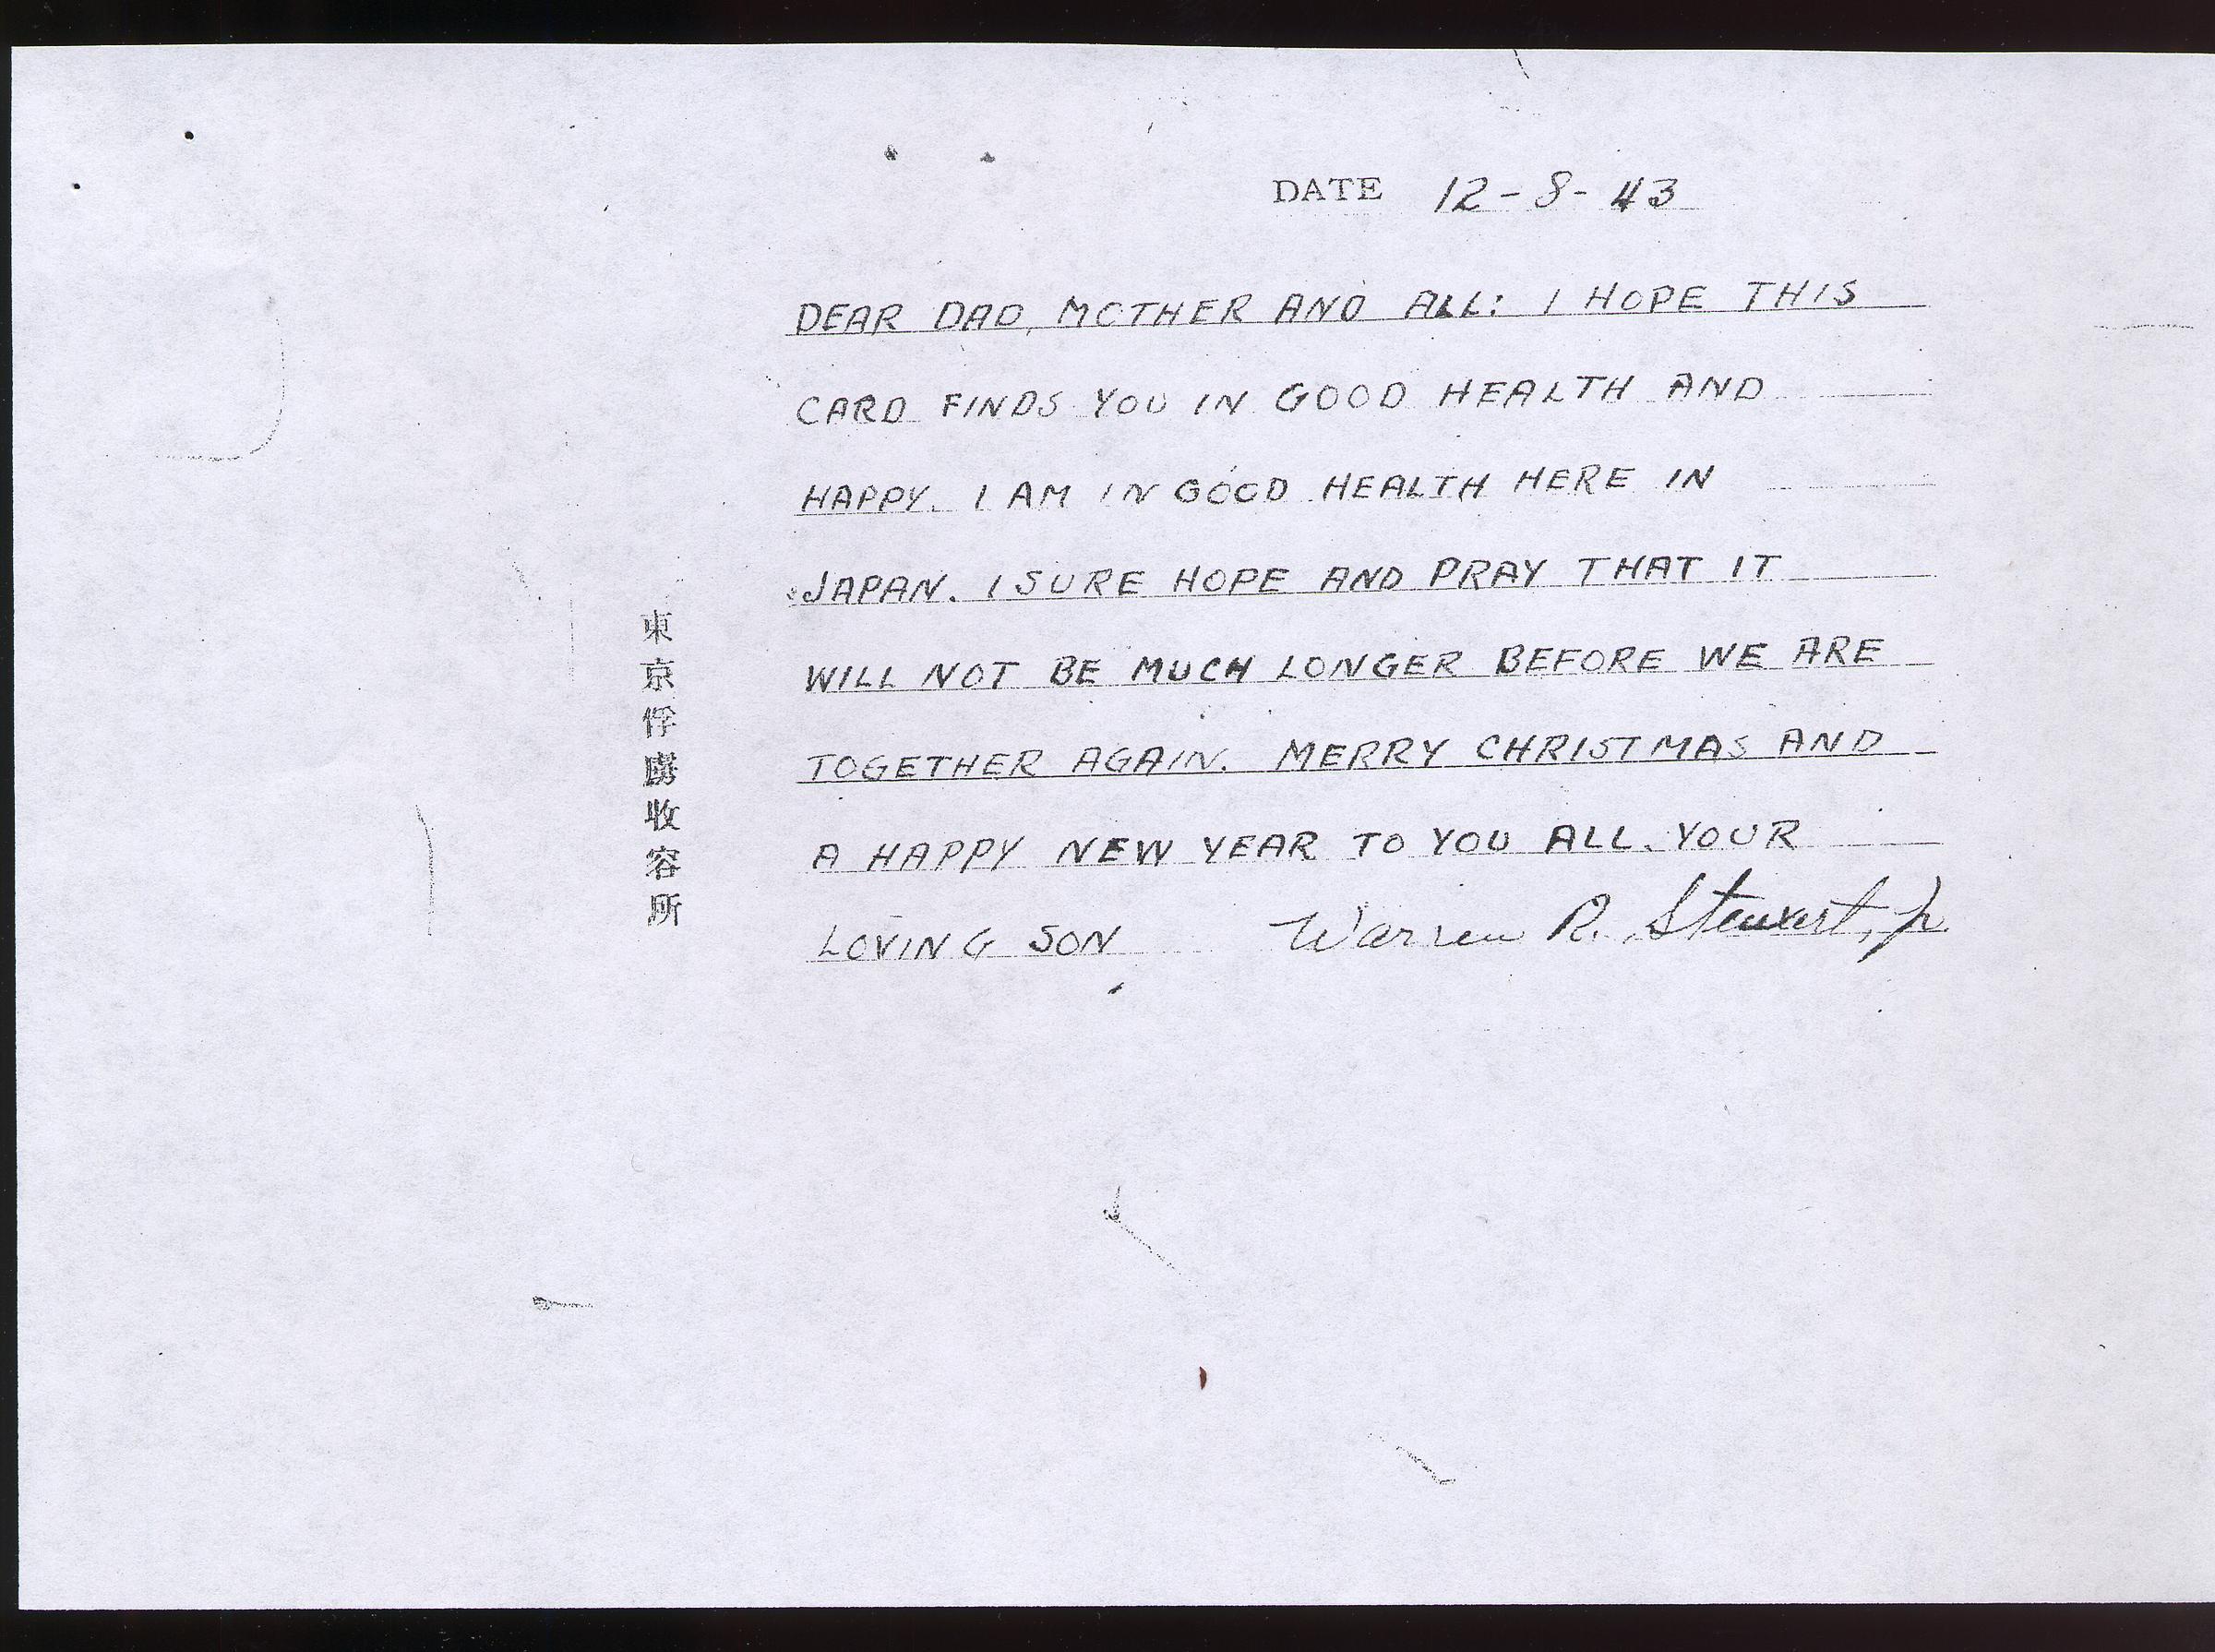 DATE 12-8-43
DEAR DAD, MOTHER AND ALL: I HOPE THIS
CARD FINDS YOU IN GOOD HEALTH AND
HAPPY. I AM IN GOOD HEALTH HERE IN
JAPAN. I SURE HOPE AND PRAY THAT IT
WILL NOT BE MUCH LONGER BEFORE WE ARE
TOGETHER AGAIN. MERRY CHRISTMAS AND
A HAPPY NEW YEAR TO YOU ALL. YOUR
LOVING SON Warren R. Stewart, Jr.
東京俘虜收容所